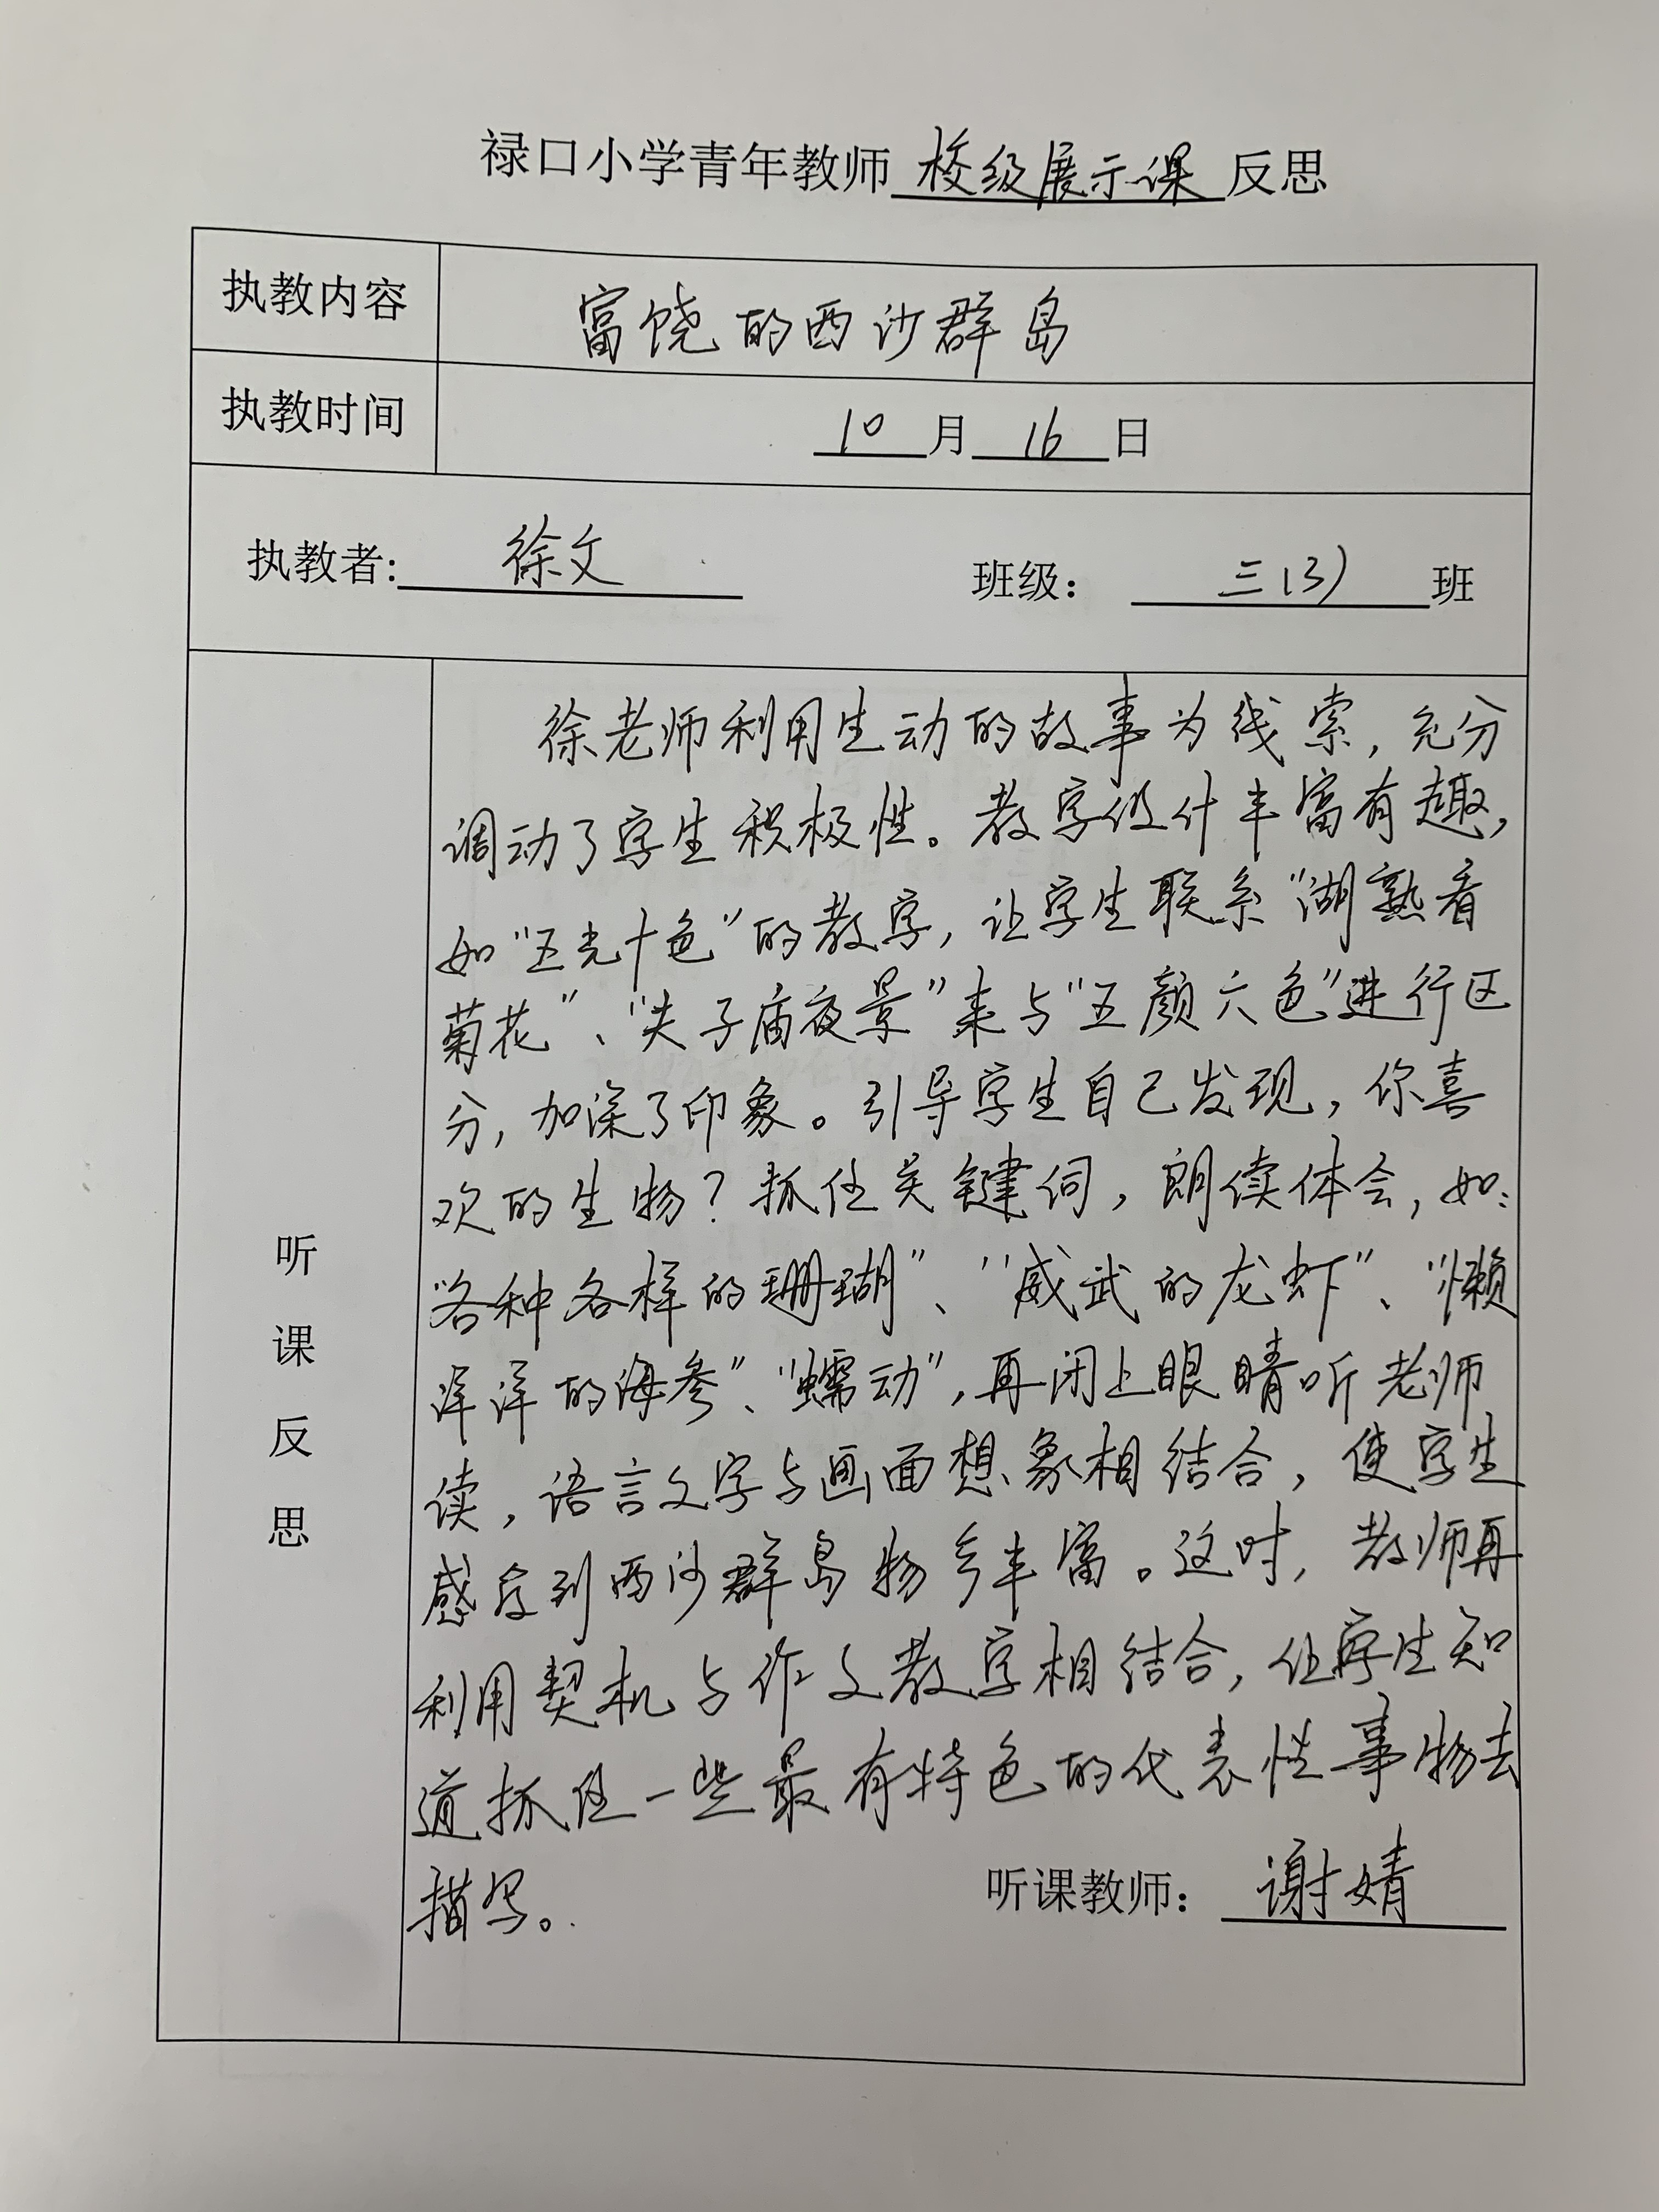 禄口小学青年教师校级展示课反思
执教内容 富饶的西沙群岛
执教时间 10月16日
执教者:徐文 班级：三(3)班
听课反思
徐老师利用生动的故事为线索，充分
调动了学生积极性。教学设计丰富有趣，
如“五光十色”的教学，让学生联系“湖熟看
菊花”、“夫子庙夜景”来与“五颜六色”进行区
分，加深了印象。引导学生自己发现，你喜
欢的生物？抓住关键词，朗读体会，如：
“各种各样的珊瑚”、“威武的龙虾”、“懒
洋洋的海参”、“蠕动”，再闭上眼睛听老师
读，语言文字与画面想象相结合，使学生
感受到西沙群岛物产丰富。这时，教师再
利用契机与作文教学相结合，让学生知
道抓住一些最有特色的代表性事物去
描写。
听课教师：谢婧